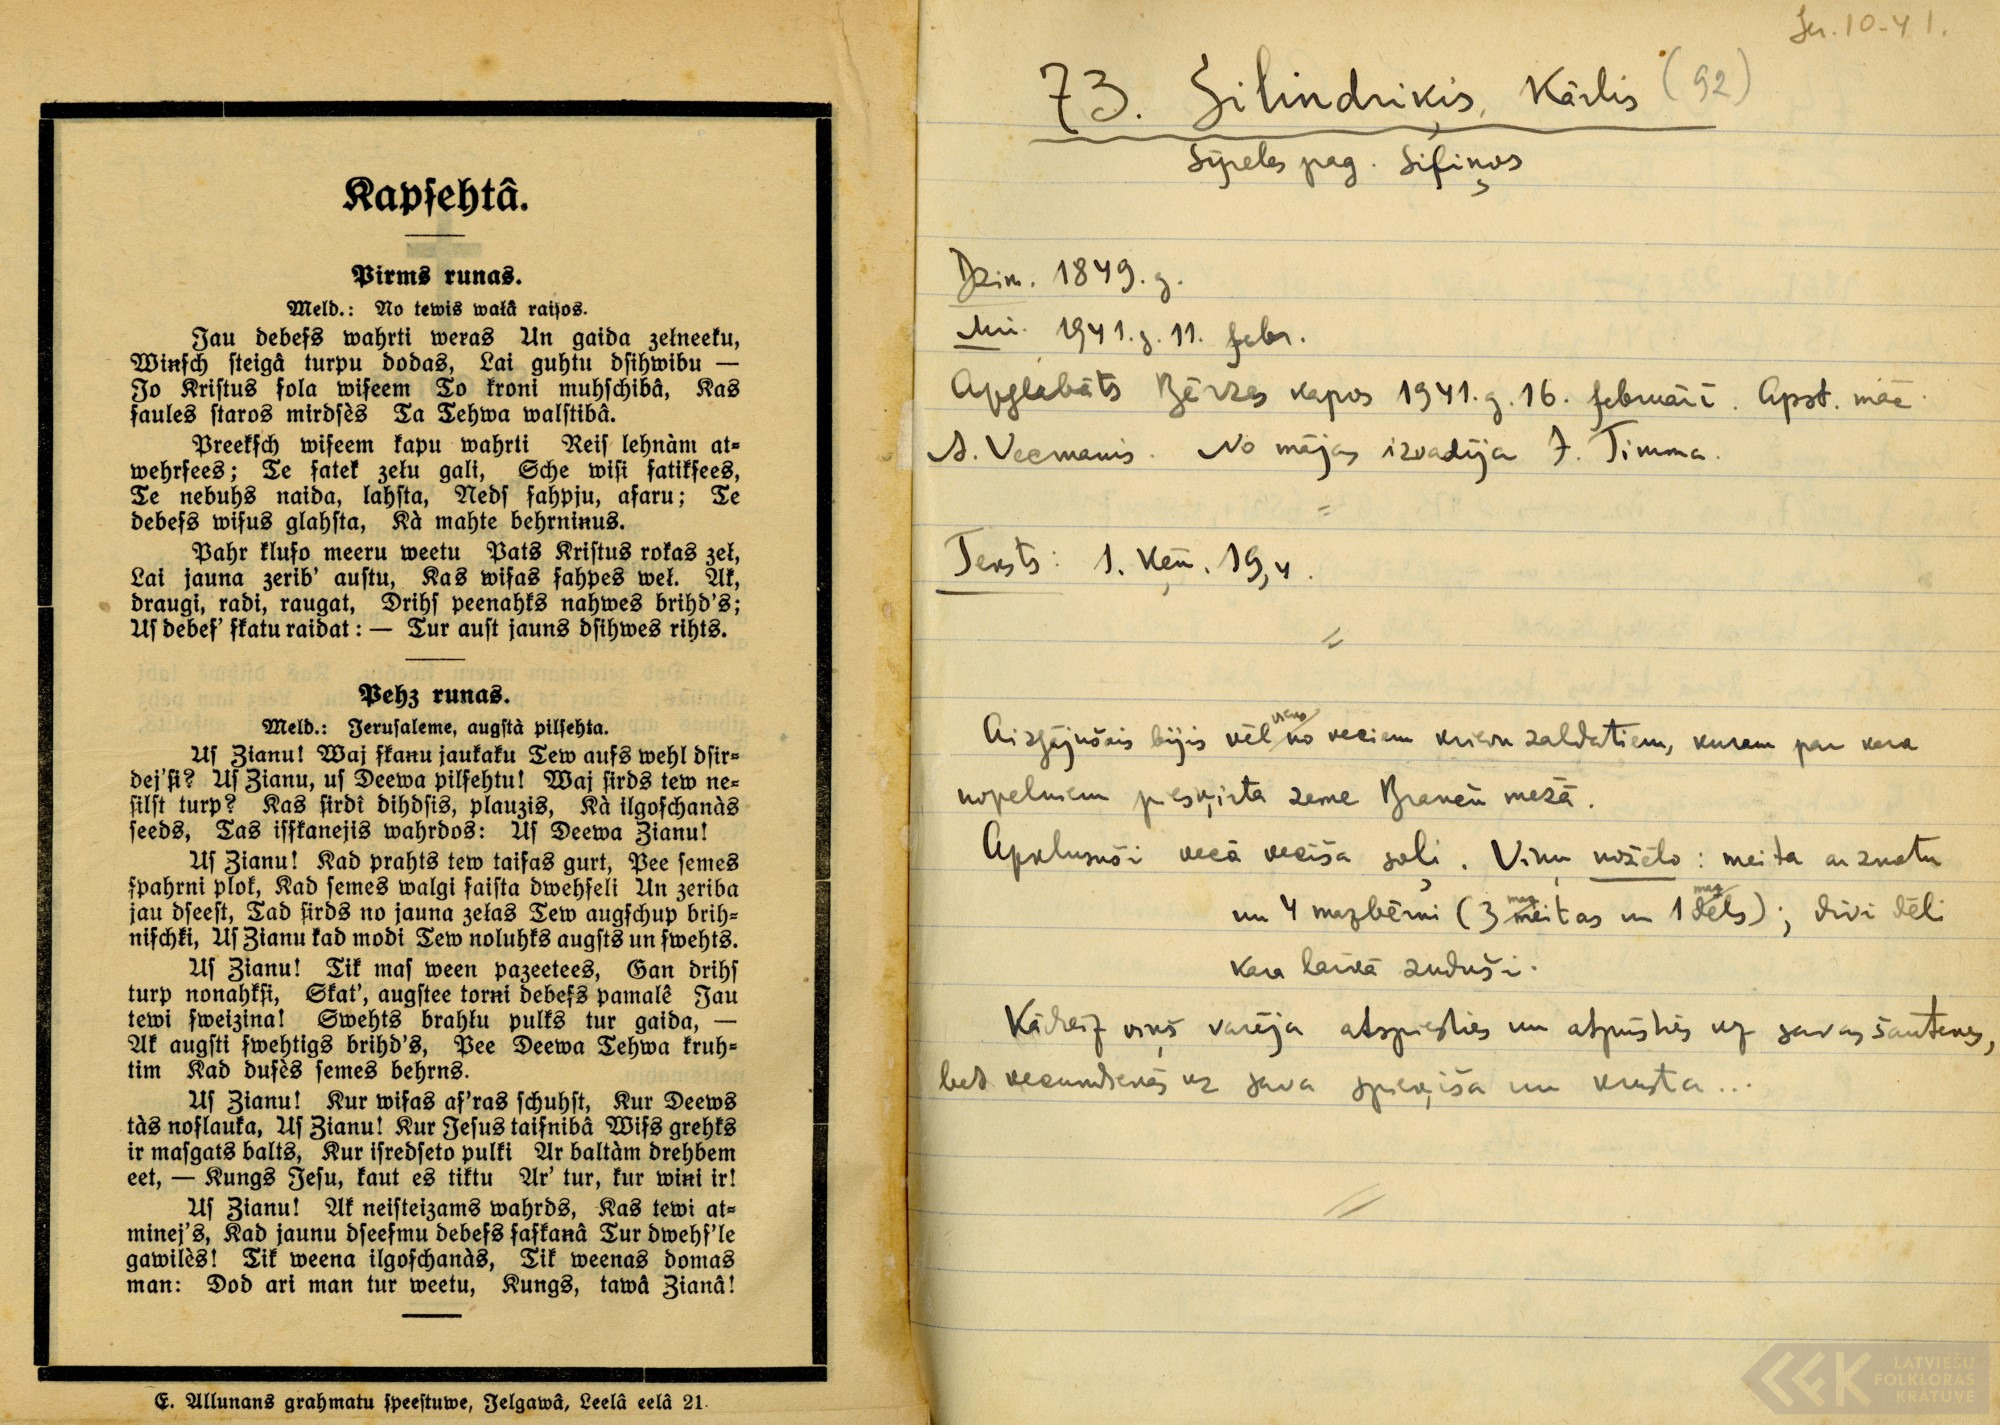 Kapſehtâ.
Pirms runas.
Meld.: No tewis wałâ raiſos.
Jau debeſs wahrti weras Un gaida zełneeku,
Winſch ſteigâ turpu dodas, Lai guhtu dſihwibu —
Jo Kriſtus ſola wiſeem To kroni muhſchibâ, Kas
ſaules ſtaros mirdſès Ta Tehwa walſtibâ.
Preekſch wiſeem kapu wahrti Reiſ lehnàm at=
wehrſees; Te ſatek zełu gali, Sche wiſi ſatikſees,
Te nebuhs naida, lahſta, Nedſ ſahpju, aſaru; Te
debeſs wiſus glahſta, Kà mahte behrninus.
Pahr kluſo meeru weetu Pats Kriſtus rokas zeł,
Lai jauna zerib' auſtu, Kas wiſas ſahpes weł. Ak,
draugi, radi, raugat, Drihſ peenahks nahwes brihd's;
Uſ debeſ' ſkatu raidat: — Tur auſt jauns dſihwes rihts.
Pehz runas.
Meld.: Jeruſaleme, augſtà pilſehta.
Uſ Zianu! Waj ſkanu jaukaku Tew auſs wehl dſir=
dej'ſi? Uſ Zianu, uſ Deewa pilſehtu! Waj ſirds tew ne=
ſilſt turp? Kas ſirdî dihdſis, plauzis, Kà ilgoſchanàs
ſeeds, Tas iſſkanejis wahrdos: Uſ Deewa Zianu!
Uſ Zianu! Kad prahts tew taiſas gurt, Pee ſemes
ſpahrni plok, Kad ſemes walgi ſaiſta dwehſeli Un zeriba
jau dſeeſt, Tad ſirds no jauna zełas Tew augſchup brih=
niſchki, Uſ Zianu kad modi Tew noluhks augſts un ſwehts.
Uſ Zianu! Tik maſ ween pazeetees, Gan drihſ
turp nonahkſi, Skat', augſtee torni debeſs pamalê Jau
tewi ſweizina! Swehts brahłu pulks tur gaida, —
Ak augſti ſwehtigs brihd's, Pee Deewa Tehwa kruh=
tim Kad duſès ſemes behrns.
Uſ Zianu! Kur wiſas aſ'ras ſchuhſt, Kur Deews
tàs noſlauka, Uſ Zianu! Kur Jeſus taiſnibâ Wiſs grehks
ir maſgats balts, Kur iſredſeto pulki Ar baltàm drehbem
eet, — Kungs Jeſu, kaut es tiktu Ar' tur, kur wini ir!
Uſ Zianu! Ak neiſteizams wahrds, Kas tewi at=
minej's, Kad jaunu dſeeſmu debeſs ſaſkanâ Tur dwehſ'le
gawilès! Tik weena ilgoſchanàs, Tik weenas domas
man: Dod ari man tur weetu, Kungs, tawâ Zianâ!
E. Allunans grahmatu ſpeeſtuwe, Jelgawâ, Leelâ eelâ 21.
10-41.
73. Silindriķis, Kārlis (92)
Sīpeles pag.
Dzim. 1849. g.
Mir. 1941. g. 11. febr.
Apglabāts Bērzes kapos 1941. g. 16. februārī. Apst. māc.
A. Vecmanis. No mājas izvadīja J. Timma.
Teksts: 1. Ķēn. 19,4.
Aizgājušais bijis vēl viens no veciem krievu zaldatiem, kuram par kara
nopelniem piešķirta zeme mežā.
Apklusuši vecā vecīša soļi. Viņu nožēlo: meita ar znotu
un 4 mazbērni (3 mazmeitas un 1 mazdēls); divi dēli
kara laikā zuduši.
Kādreiz viņš varēja atspiesties un atpūsties uz savas šautenes,
bet vecumdienās uz sava spieķīša un krusta...
LATVIEŠU
FOLKLORAS
KRĀTUVE